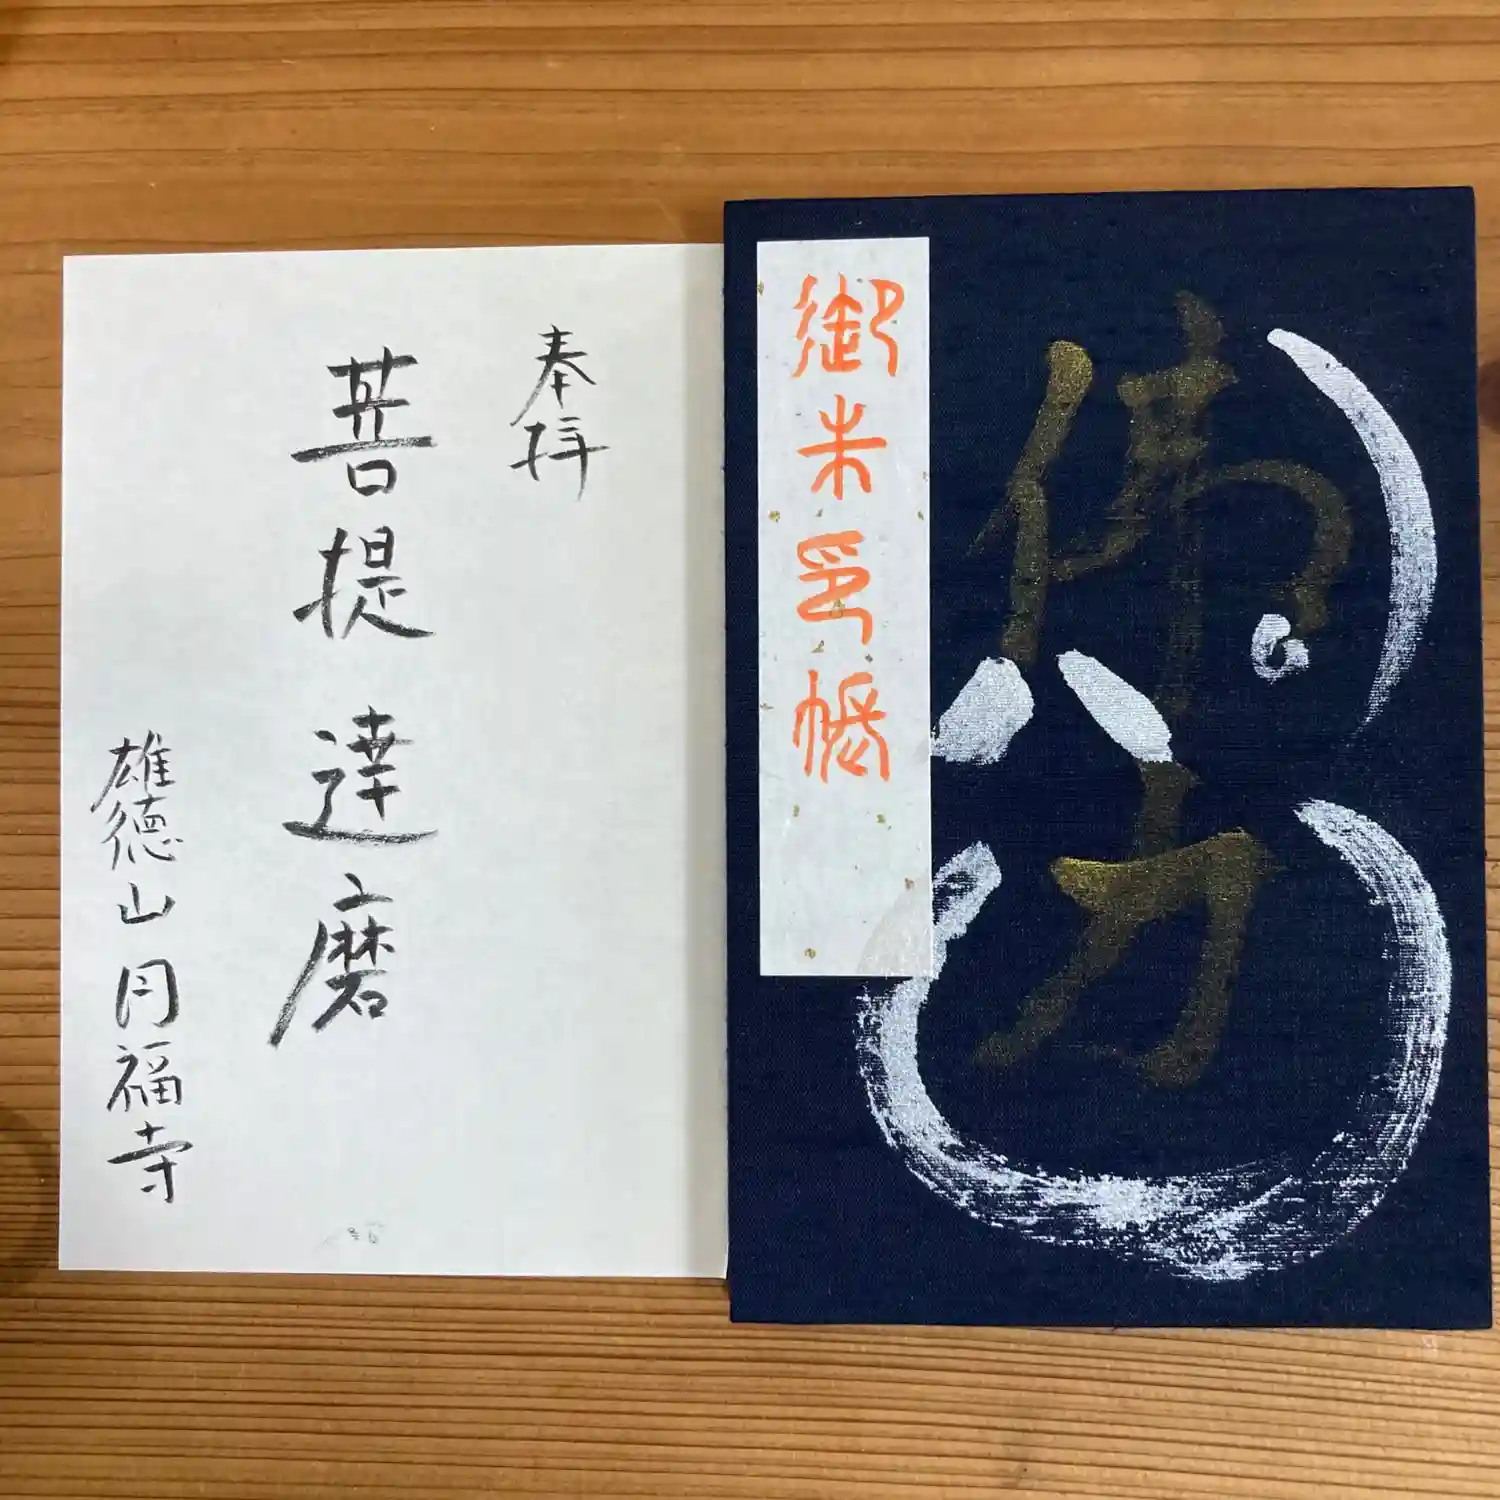 佛力
御朱印帳
奉拝
菩提達磨
雄徳山 円福寺